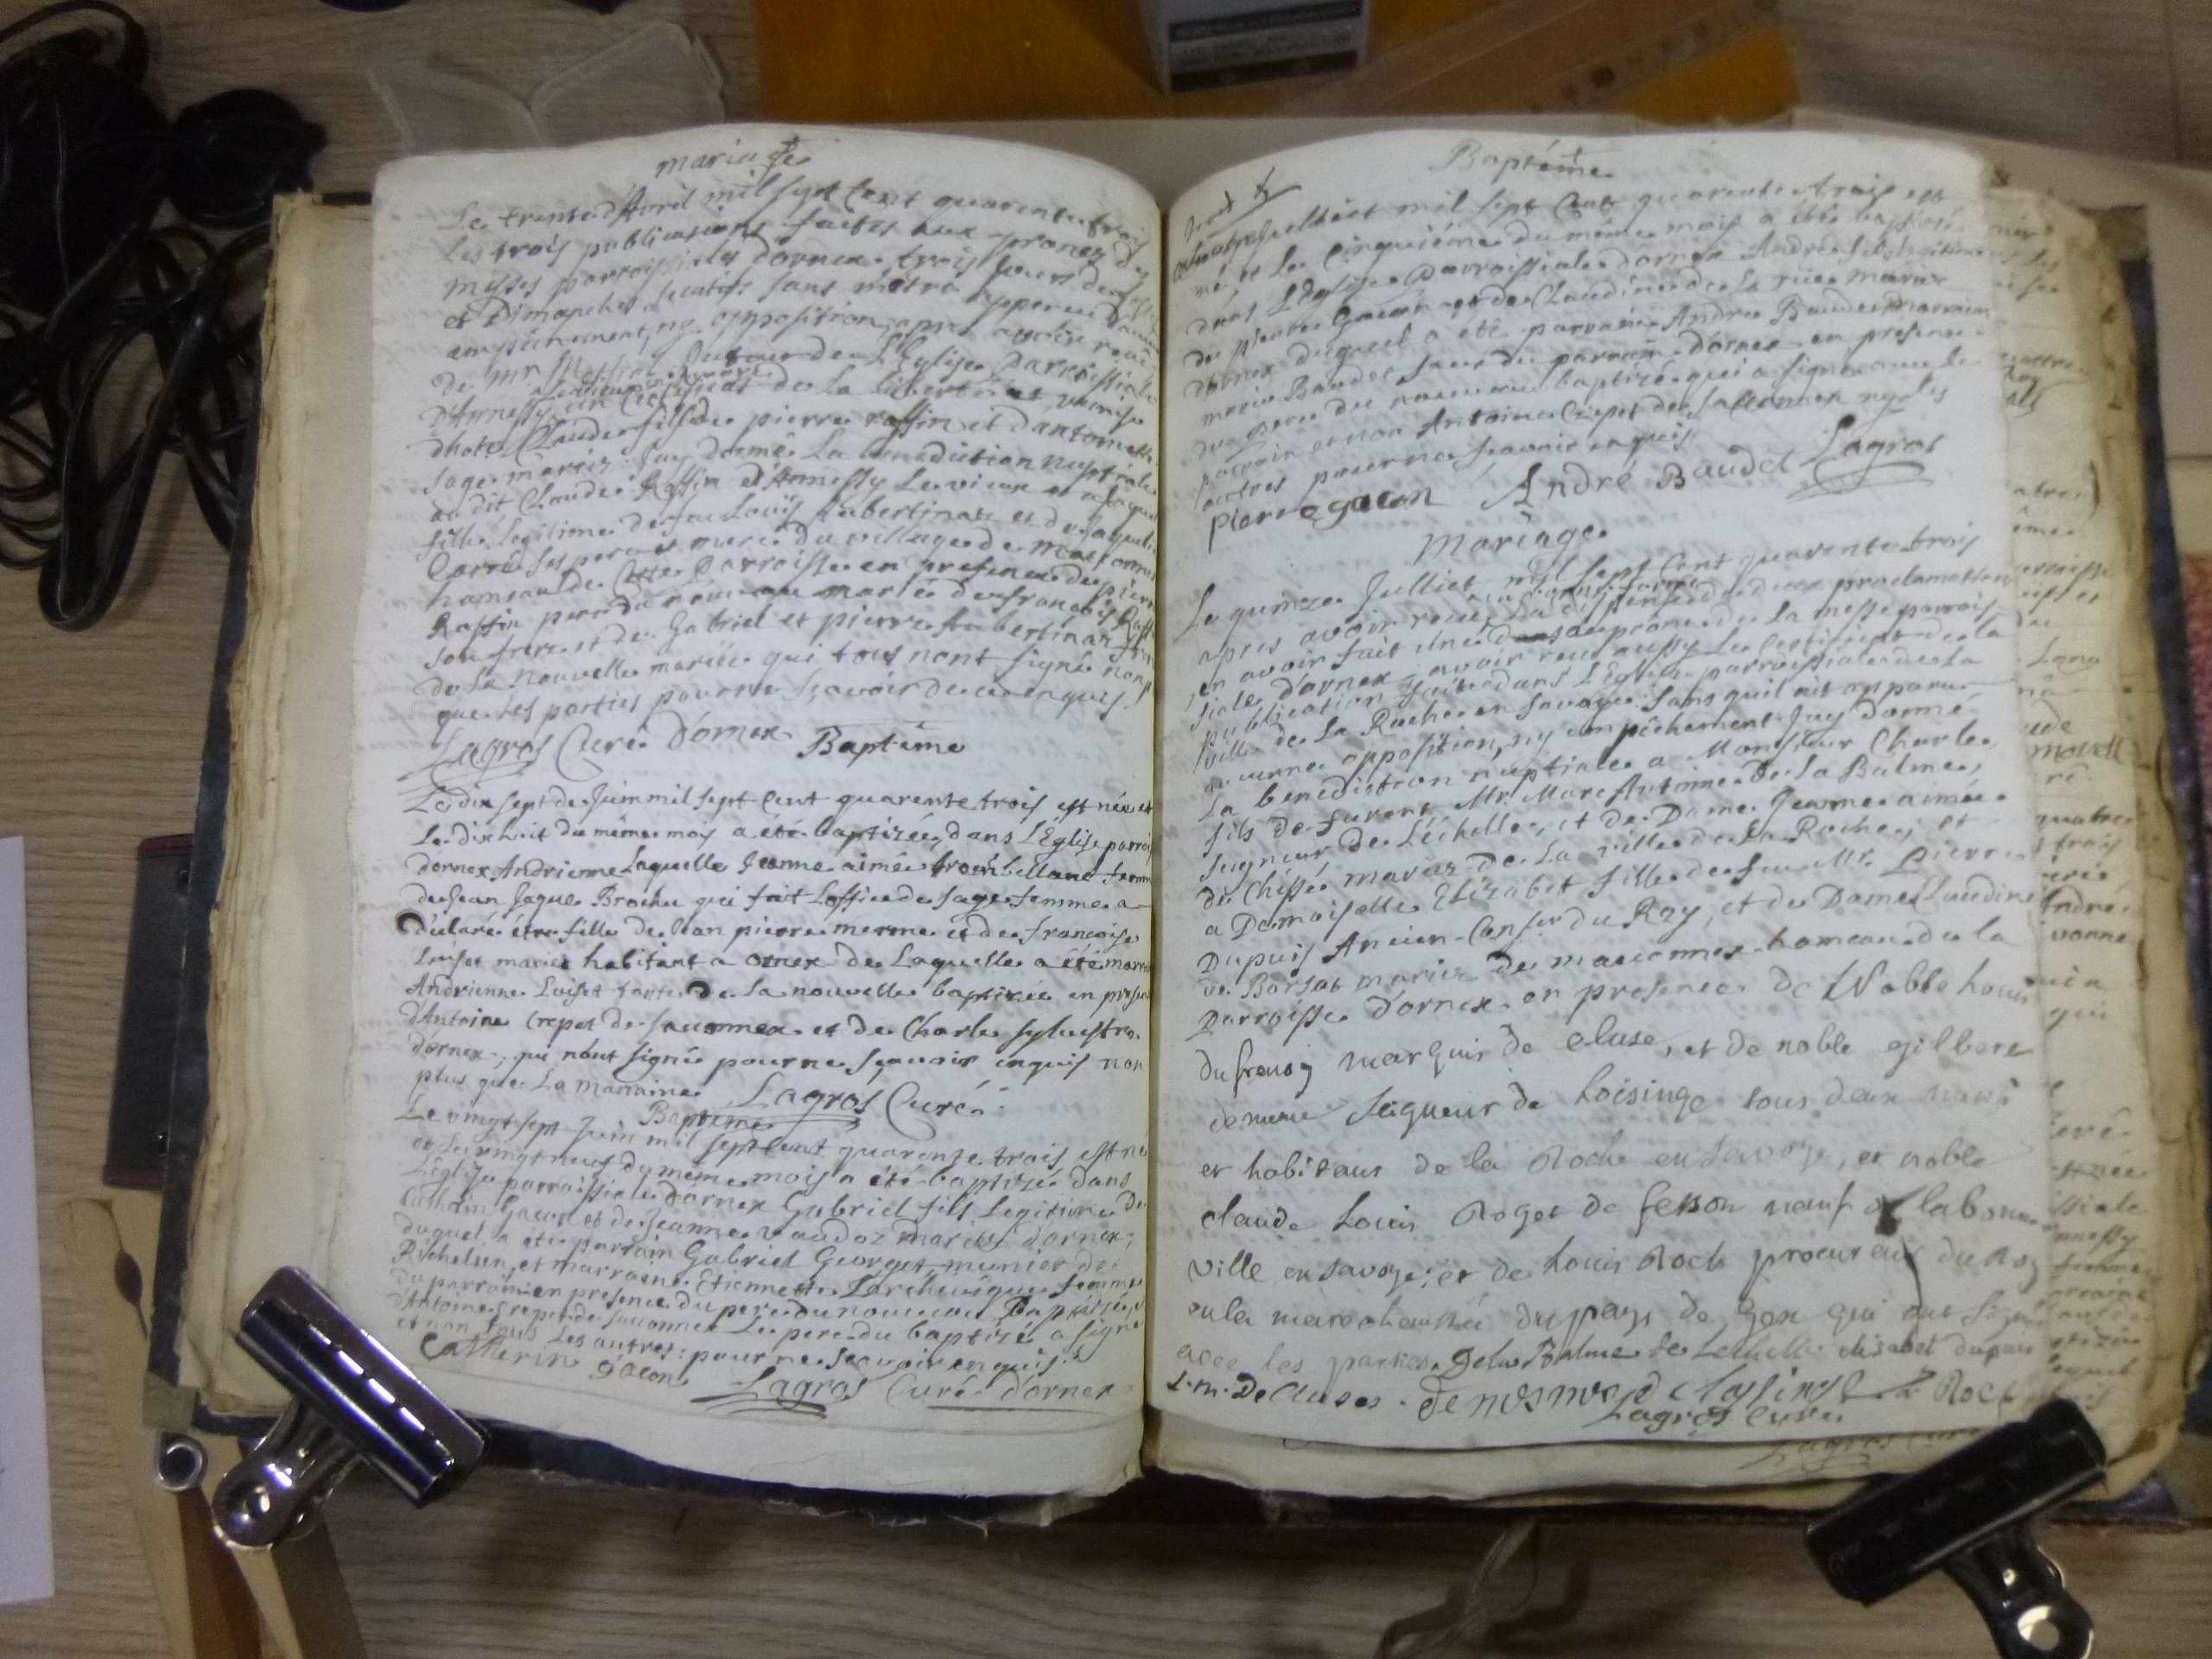 mariage
Le trente d'Avril mil sept cent quarente trois
les trois publications faites aux prones des
messes parroissiales dornex trois jours de
et Dimanches sans m'être appereu d'aucun
empêchement, ny opposition, apres avoir receu
de Mr de L'Eglise Parroissiale
D'Annessy un Certificat de la liberté et
Claude fils de pierre raffin et d'antoinette
sage mariez Jay donné La benediction nuptiale
au dit Claude Raffin d'Annessy Le vieux et a Jaque
fille legitime de feu Louïs hubertinaz et de Jaqueline
Carré ses pere et mere du village de
hameau de Cette Parroisse en presence de pierre
Raffin pere du nouveau marié de françois Raffin
son frere et de Gabriel et pierre hubertinaz freres
de la nouvelle mariée qui tous nont signé non
que les parties pour ne sçavoir de ce enquis.
Lagros Curé D'ornex
Baptême
Le dix sept de Juin mil sept Cent quarente trois est née et
Le dix huit du même mois a été baptizée dans L'Eglise parrois
dornex Andrienne Laquelle Jeanne aimée femm
de Jean Jaque Brochu qui fait Loffice de sage femme a
déclaré être fille de Jean pierre merme et de francoise
Luiset mariez habitant a ornex de Laquelle a été marr
Andrienne Luiset tante De La nouvelle baptizée en presen
d'Antoine Crepet de sauonnex et de Charle sylvestre
dornex, qui n'ont signé pour ne sçavoir enquis non
plus que La marraine Lagros Curé
Baptême
Le vingt sept Juin mil sept Cent quarente trois est né
et Le vingt neuf du même mois a été baptizé dans
L'Eglise parroissiale dornex Gabriel fils Legitime de
Cathrin Gacon et de Jeanne vaudoz mariez d'ornex,
duquel a été parrain Gabriel Georget munier de
Richelieu, et marraine Etiennette Larchevêque femme
du parrain en presence du pere du nouveau Baptizé,
d'Antoine Crepet de sauonnex Le pere du baptizé a signé
et non tous Les autres pour ne sçavoir enquis.
Catherin gacon
Lagros Curé D'ornex
Baptême
Juilliet mil sept Cent quarente trois est
né et le Cinquiéme du même mois a été baptizé
dans L'Eglise Parroissiale dornex André fils legitime
de pierre Gacon et de Claudine de la rue mariez
dornex duquel a été parrain André Baudet marraine
marie Baudet sœur du parrain dornex en presence
du pere du nouveau baptizé qui a signé avec le
parrain et non Antoine Crepet de sauonnex ny les
autres pour ne sçavoir enquis
pierre gacon André Baudet Lagros
Mariage
Le quinze Juilliet mil sept Cent quarente trois
apres avoir receu La dispense de deux proclamations
en avoir fait une au prône de la messe parrois
siale d'ornex avoir receu aussy Le Certificat de la
publication faite dans L'Eglise parroissiale de La
ville de La Roche en Savoye sans quil ait apparu
aucunne opposition, ny empêchement Jay donné
La benediction nuptiale a Monsieur Charle,
fils de furent Mr. Marc Antoine De la Balme,
seigneur de L'échelle, et de Dame Jeanne aimée
de Chissé mariez de La ville de La Roche, et
a Demoiselle Elizabet fille de feu Mr. Pierre
Dupuis Ancien Conser du Roy, et de Dame Claudine
de Borsat mariez de maconnex hameau de la
Parroisse D'ornex en presence de Noble Louis
du frenoy marquis de Cluse, et de noble gilbert
de menu seigneur de Loisinge tous deux
et habitans de la Roche en Savoye, et noble
claude Louis Roget de fesson de la bonne
ville en savoye; et de Louis Roch procureur du Roy
en la marechaussée du pays de Gex qui ont signé
avec les parties. Dela Balme de Lechelle elisabet dupuis
L. m. De Cluses. Roch
Lagros Curé